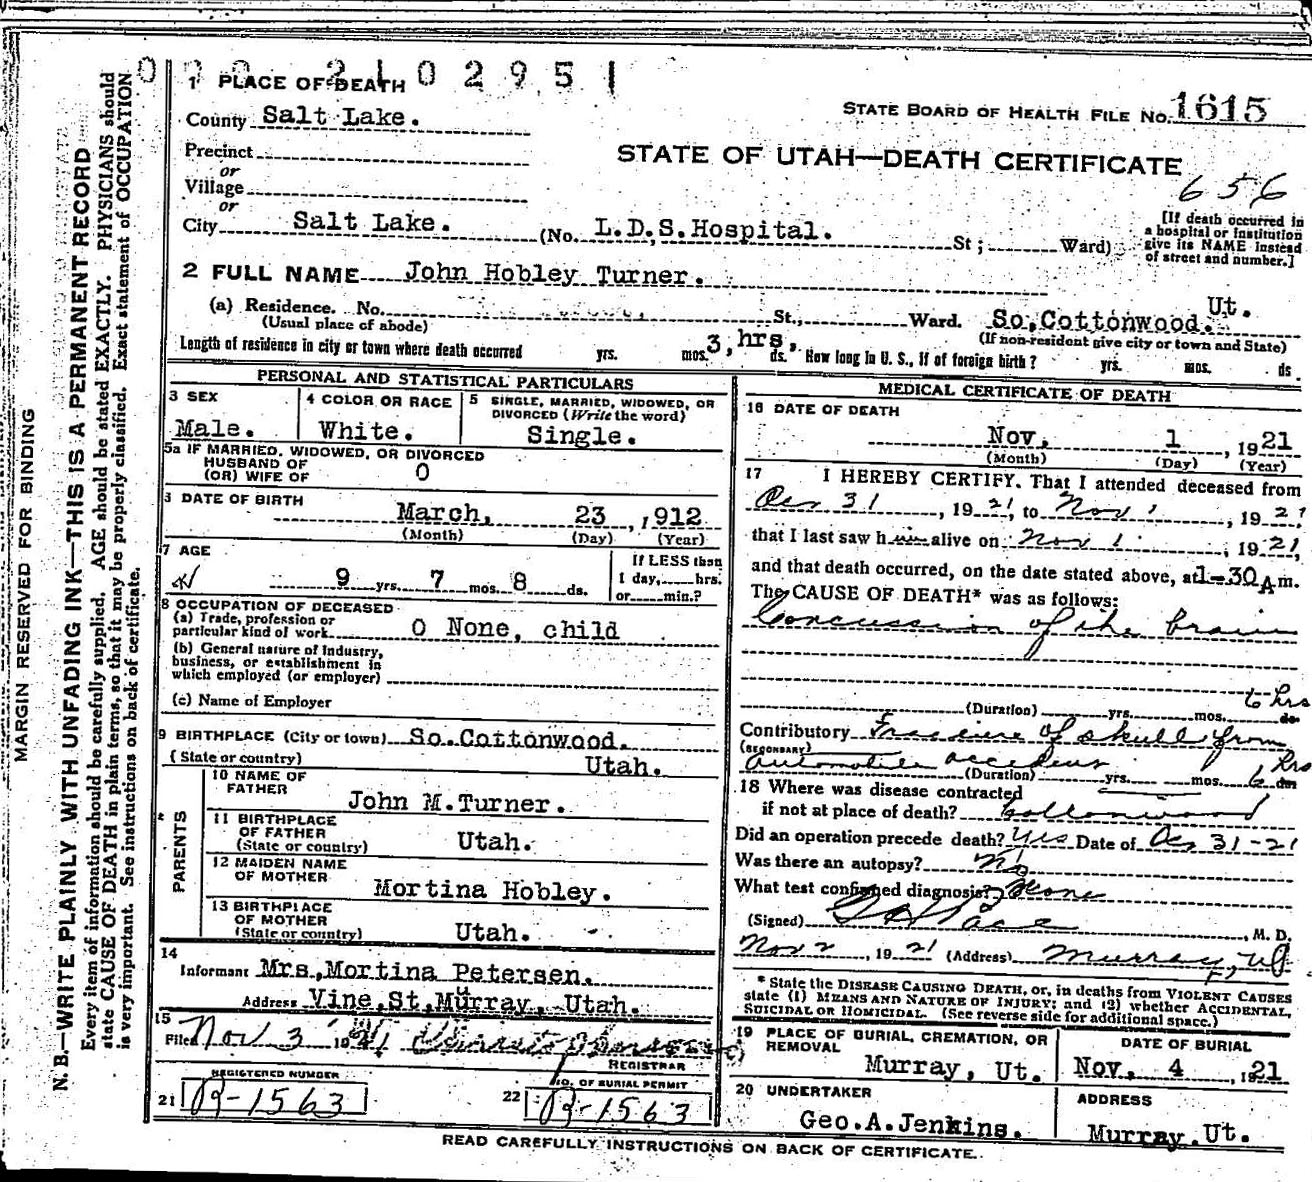 0 0 0 2 1 0 2 9 5 1
1 PLACE OF DEATH
County Salt Lake.
STATE BOARD OF HEALTH FILE No. 1615
Precinct
or
Village
or
STATE OF UTAH—DEATH CERTIFICATE
656
City Salt Lake. (No. L.D.S.Hospital. St; Ward)
[If death occurred in
a hospital or institution
give its NAME instead
of street and number.]
2 FULL NAME John Hobley Turner.
(a) Residence. No. St., Ward. So.Cottonwood. Ut.
(Usual place of abode) (If non-resident give city or town and State)
Length of residence in city or town where death occurred yrs. mos. 3,hrs, ds. How long in U. S., if of foreign birth? yrs. mos. ds
PERSONAL AND STATISTICAL PARTICULARS
3 SEX
Male.
4 COLOR OR RACE
White.
5 SINGLE, MARRIED, WIDOWED, OR
DIVORCED (Write the word)
Single.
5a IF MARRIED, WIDOWED, OR DIVORCED
HUSBAND OF
(OR) WIFE OF 0
DATE OF BIRTH
March, 23, 1912
(Month) (Day) (Year)
7 AGE
9 yrs. 7 mos. 8 ds.
If LESS than
1 day, hrs.
or min.?
8 OCCUPATION OF DECEASED
(a) Trade, profession or
particular kind of work 0 None, child
(b) General nature of Industry,
business, or establishment in
which employed (or employer)
(c) Name of Employer
9 BIRTHPLACE (City or town) So.Cottonwood.
(State or country) Utah.
PARENTS
10 NAME OF
FATHER
John M.Turner.
11 BIRTHPLACE
OF FATHER
(State or country) Utah.
12 MAIDEN NAME
OF MOTHER
Mortina Hobley.
13 BIRTHPLACE
OF MOTHER
(State or country) Utah.
14
Informant Mrs,Mortina Petersen.
Address Vine,St,Murray, Utah.
15
Filed Nov 3 1921
REGISTRAR
REGISTERED NUMBER
21 R-1563
NO. OF BURIAL PERMIT
22 R-1563
MEDICAL CERTIFICATE OF DEATH
16 DATE OF DEATH
Nov, 1, 1921
(Month) (Day) (Year)
17 I HEREBY CERTIFY. That I attended deceased from
Oct 31, 1921, to Nov 1, 1921
that I last saw him alive on Nov 1, 1921,
and that death occurred, on the date stated above, at 1-30 A m.
The CAUSE OF DEATH* was as follows:
Concussion of the brain
(Duration) yrs. mos. 6 hrs ds.
Contributory Fracture of skull from
(SECONDARY)
automobile accident
(Duration) yrs mos. 6 hrs ds
18 Where was disease contracted
if not at place of death? Cottonwood
Did an operation precede death? Yes Date of Oct 31-21
Was there an autopsy? No
What test confirmed diagnosis? None
(Signed) G H Pace, M. D.
Nov 2, 1921 (Address) Murray, Ut
* State the DISEASE CAUSING DEATH, or, in deaths from VIOLENT CAUSES
state (1) MEANS AND NATURE OF INJURY; and (2) whether ACCIDENTAL,
SUICIDAL OR HOMICIDAL. (See reverse side for additional space.)
19 PLACE OF BURIAL, CREMATION, OR
REMOVAL
Murray, Ut.
DATE OF BURIAL
Nov, 4, 1921
20 UNDERTAKER
Geo.A.Jenkins.
ADDRESS
Murray.Ut.
READ CAREFULLY INSTRUCTIONS ON BACK OF CERTIFICATE.
MARGIN RESERVED FOR BINDING
N. B.—WRITE PLAINLY WITH UNFADING INK—THIS IS A PERMANENT RECORD
Every item of information should be carefully supplied. AGE should be stated EXACTLY. PHYSICIANS should
state CAUSE OF DEATH in plain terms, so that it may be properly classified. Exact statement of OCCUPATION
is very important. See instructions on back of certificate.